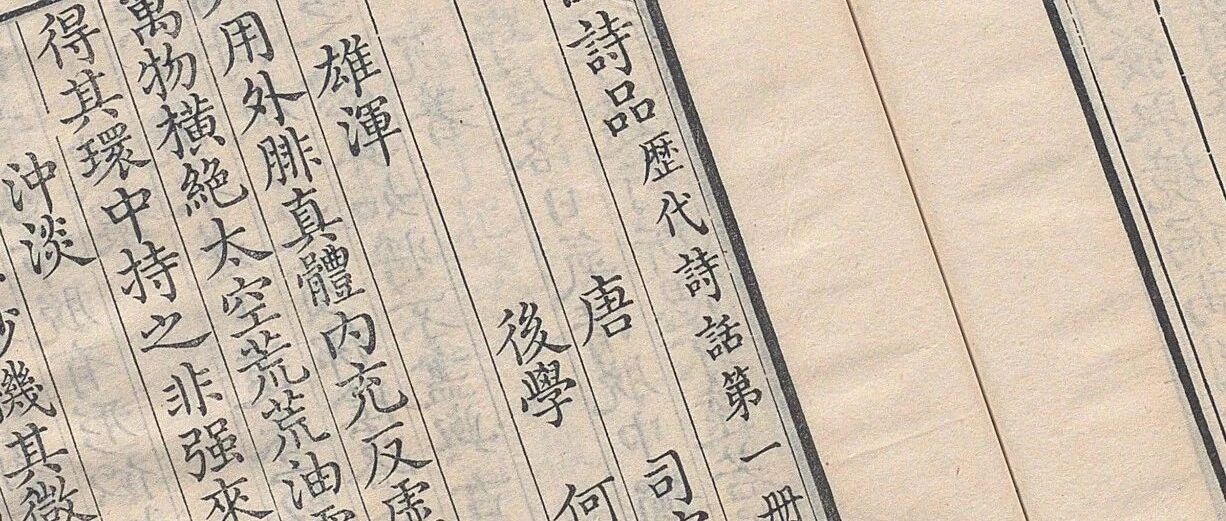 詩品歷代詩話第一冊
唐 司
後學 何
雄渾
用外腓真體内充反虛
萬物橫絕太空荒荒油
得其環中持之非强來
沖淡
機其微